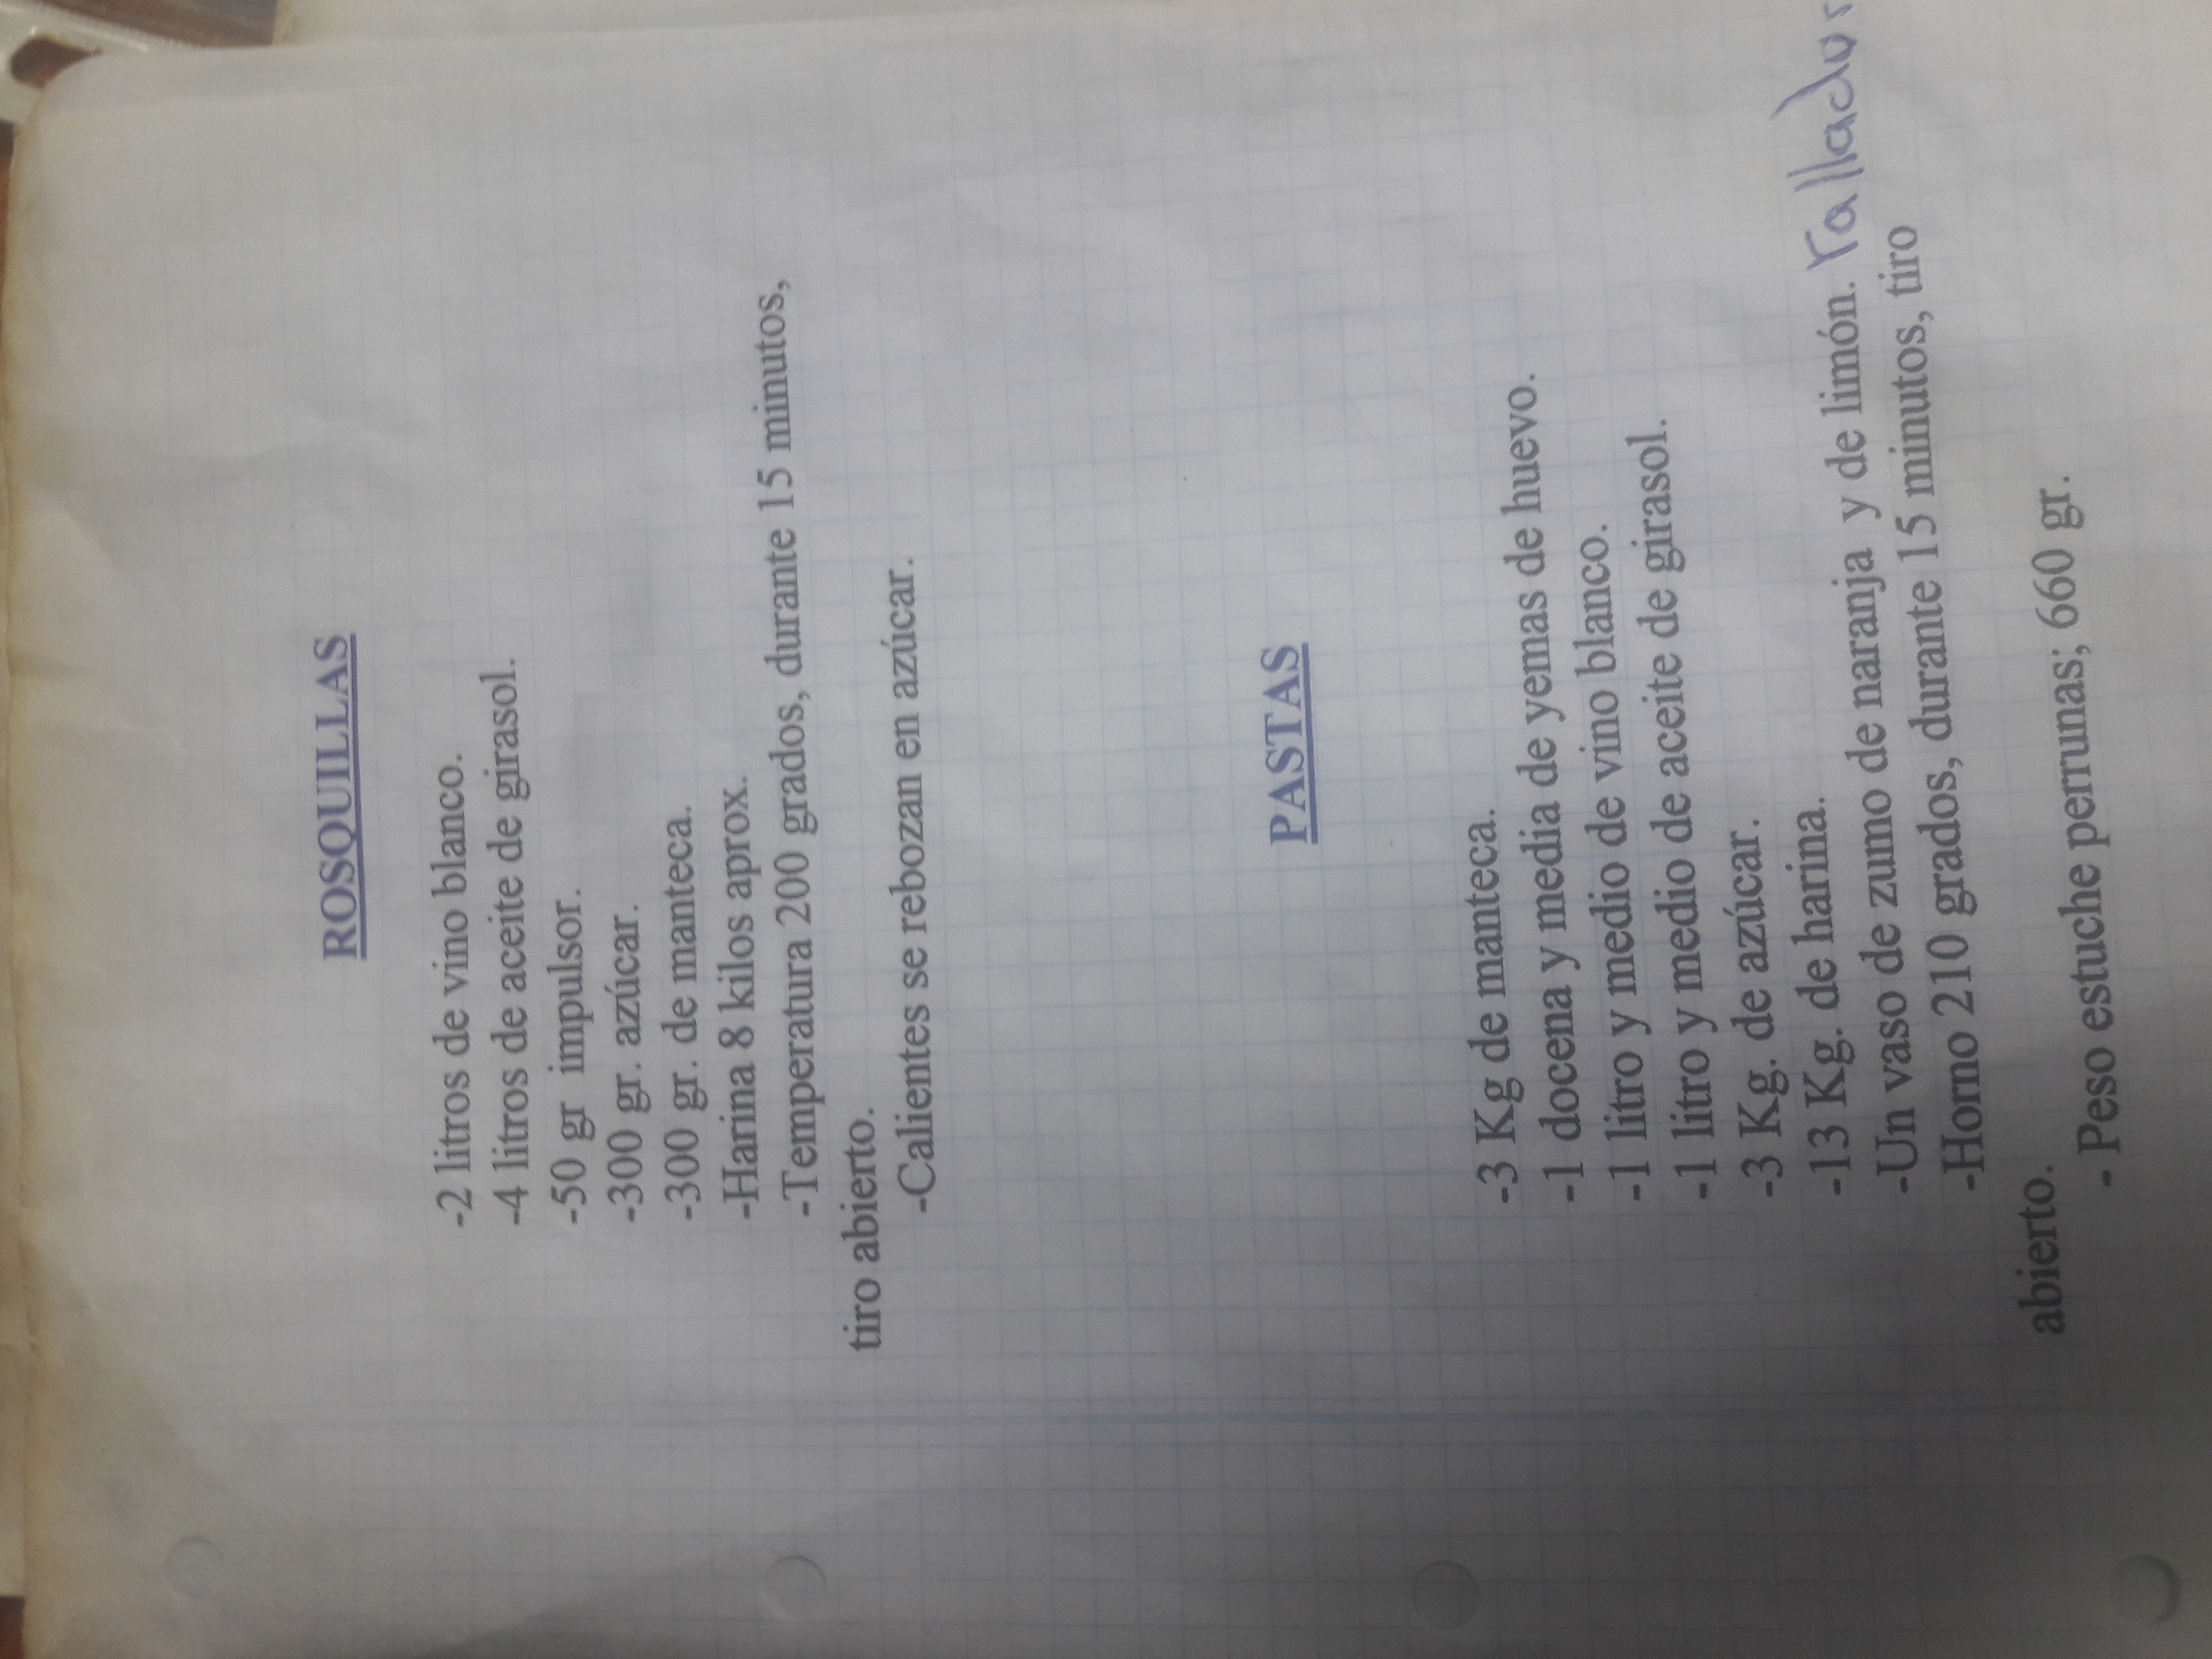 ROSQUILLAS
-2 litros de vino blanco.
-4 litros de aceite de girasol.
-50 gr impulsor.
-300 gr. azúcar.
-300 gr. de manteca.
-Harina 8 kilos aprox.
-Temperatura 200 grados, durante 15 minutos,
tiro abierto.
-Calientes se rebozan en azúcar.
PASTAS
-3 Kg de manteca.
-1 docena y media de yemas de huevo.
-1 litro y medio de vino blanco.
-1 litro y medio de aceite de girasol.
-3 Kg. de azúcar.
-13 Kg. de harina.
-Un vaso de zumo de naranja y de limón. rallador
-Horno 210 grados, durante 15 minutos, tiro
abierto.
- Peso estuche perrunas; 660 gr.